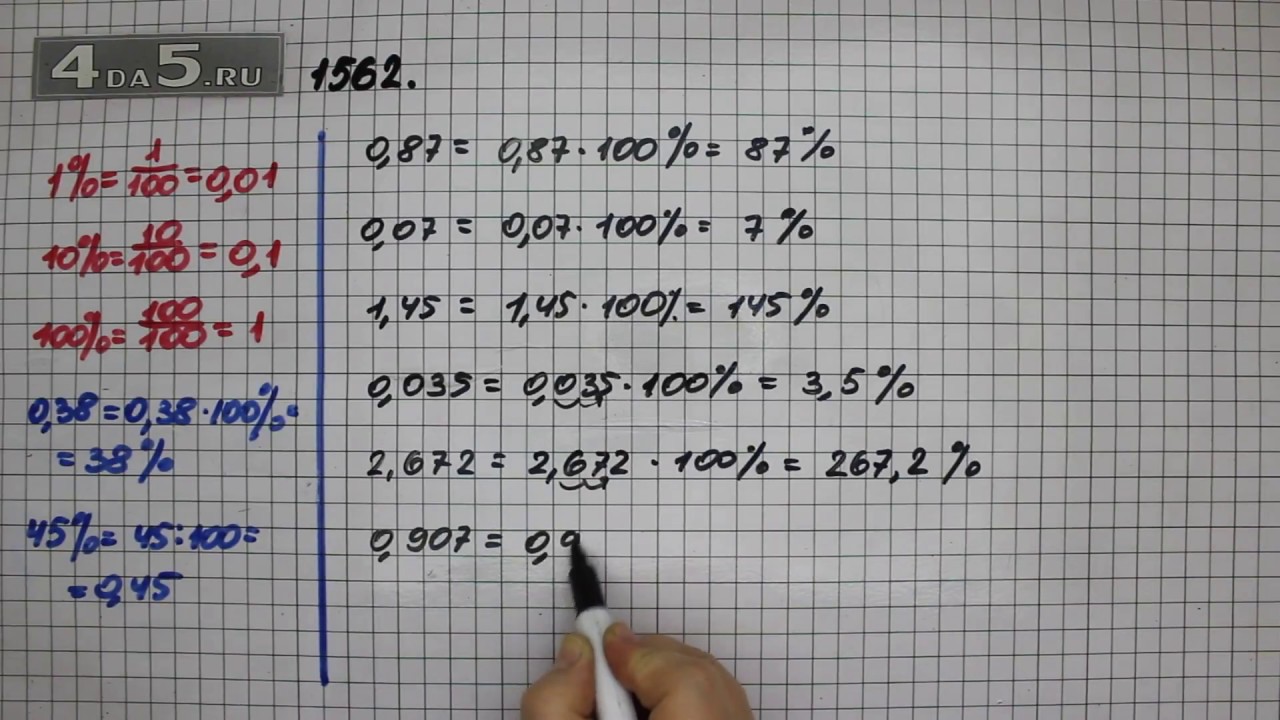 4DA5.RU
1562.
1% = 1/100 = 0,01
10% = 10/100 = 0,1
100% = 100/100 = 1
0,38 = 0,38 · 100% =
= 38%
45% = 45 : 100 =
= 0,45
0,87 = 0,87 · 100% = 87%
0,07 = 0,07 · 100% = 7%
1,45 = 1,45 · 100% = 145%
0,035 = 0,035 · 100% = 3,5%
2,672 = 2,672 · 100% = 267,2%
0,907 = 0,9